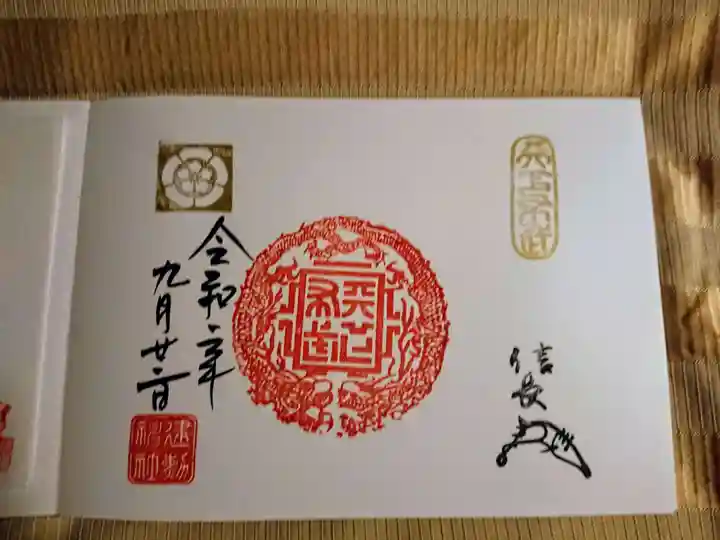 天下布武
信長
天下布武
令和二年
九月廿二日
建勲神社